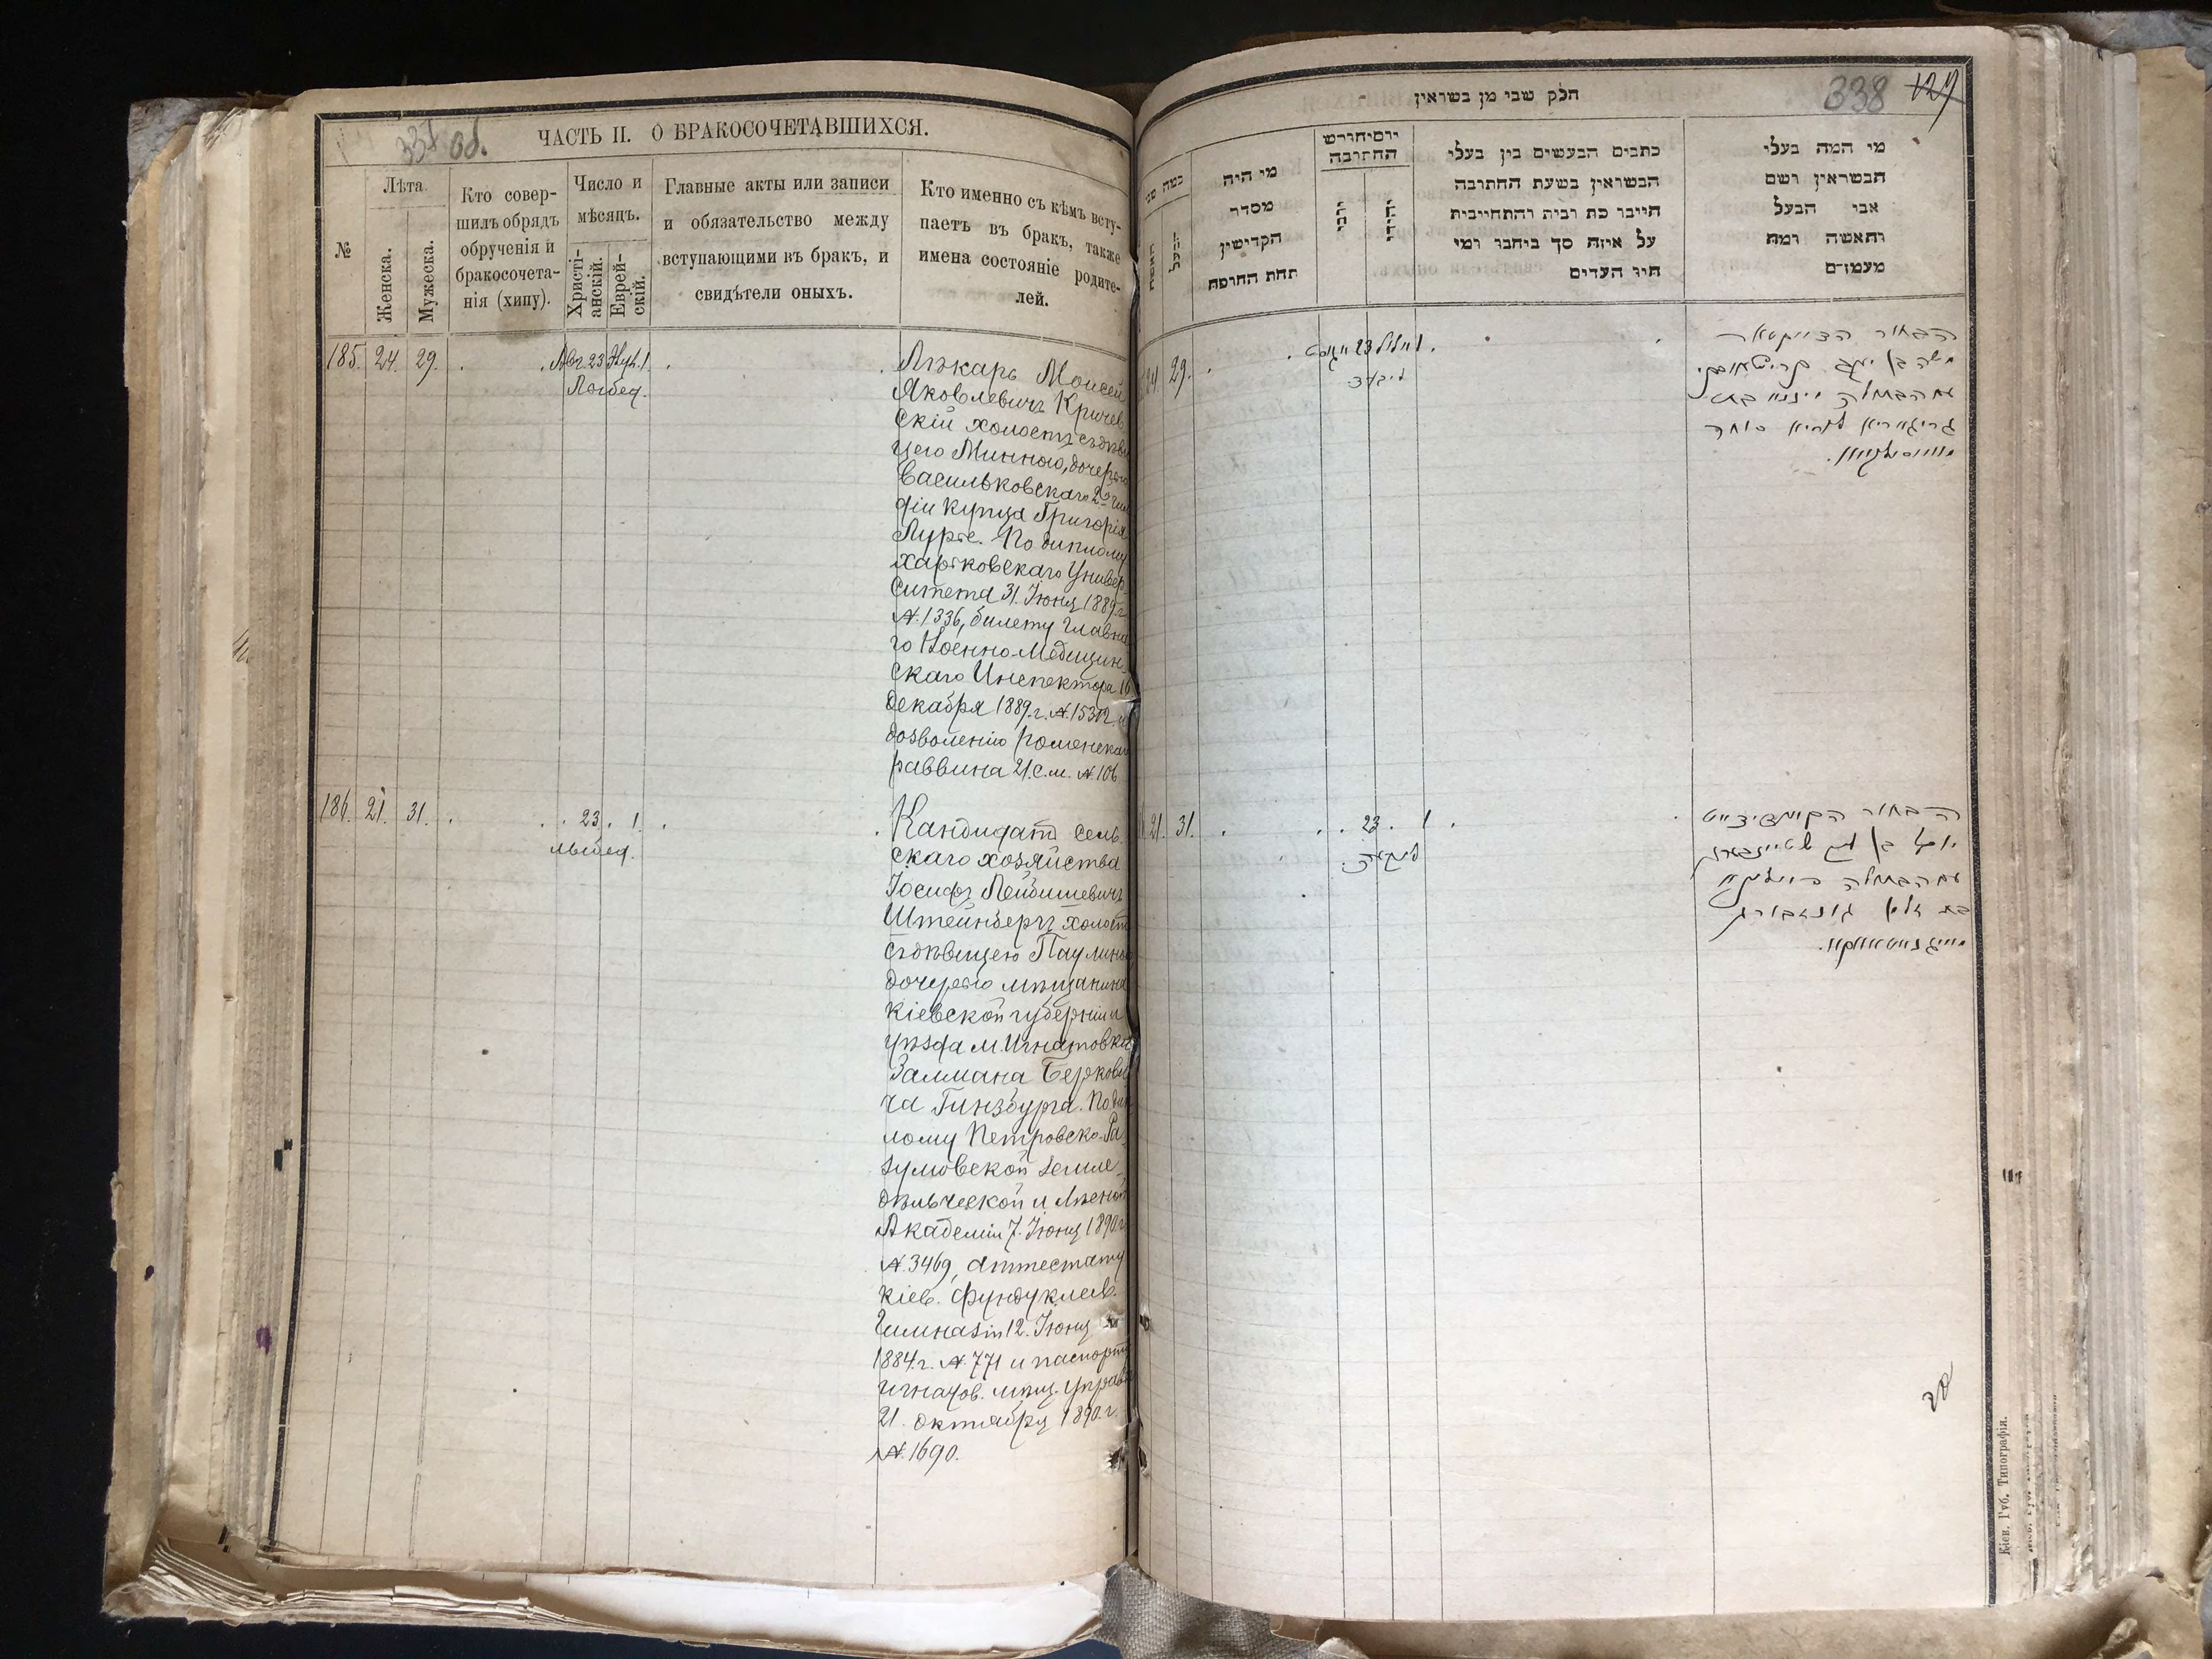 338 об.
ЧАСТЬ II. О БРАКОСОЧЕТАВШИХСЯ.
№
Лѣта
Женска.
Мужеска.
Кто совер-
шилъ обрядъ
обрученія и
бракосочета-
нія (хипу).
Число и
мѣсяцъ.
Христі-
анскій.
Еврей-
скій.
Главные акты или записи
и обязательство между
вступающими въ бракъ, и
свидѣтели оныхъ.
Кто именно съ кѣмъ всту-
паетъ въ бракъ, также
имена состояніе родите-
лей.
185. 24. 29.
Авг. 23 Элул. 1.
Лыбед.
Лѣкарь Моисей
Яковлевичъ Кричев
скій холостъ съ дѣви
цею Минною, дочерью
Васильковскаго 2й гил
діи купца Григорія
Лурье. По диплому
Харьковскаго Универ
ситета 31. Іюня 1889.г.
№.1336, билету Главна
го Военно-Медицин
скаго Инспектора 16
декабря 1889.г. №.15312. и
дозволенію роменскаго
раввина 21.с.м. №.106
186. 21. 31.
23. 1.
Лыбед.
Кандидатъ сель
скаго хозяйства
Іосифъ Лейбишевичъ
Штейнбергъ холостъ
съ дѣвицею Паулиною
дочерью мѣщанина
Кіевской губерніи и
уѣзда м. Игнатовка
Залмана Беркови
ча Гинзбурга. По дип
лому Петровско-Ра
зумовской Земле
дѣльческой и Лѣсной
Академіи 7. Іюня 1890.г.
№.3469, аттестату
Кіев. Фундуклеев.
Гимназіи 12. Іюня
1884.г. №.771 и паспорту
Игнатов. мѣщ. управы
21. октября 1890.г.
№.1690.
338 129
חלק שבי מן בשראין
כמה שני
האשה
הבעל
מי היה
מסדר
הקדישין
תחת החופה
יום וחורש
החתובה
כתבים הבעשים בין בעלי
הבשואין בשעת החתובה
חייבו כת ובית והתחייבית
על איזה סך ביחבו ומי
היו העדים
מי המה בעלי
הבשואין ושם
אבי הבעל
והאשה ומה
מעמדם
24. 29.
1 אלול 23 אויגוסט
ליבעד
הבחור
משה בן יעקב קריטשעווסקי
עם הבתולה מיננא בת
גריגאריא לוריא סוחר
21. 31.
23. 1.
ליבעד.
הבחור
יוסף בן ליב שטיינבערג
עם הבתולה פוילינא
בת זלמן גינזבורג
Кіев. Губ. Типографія.